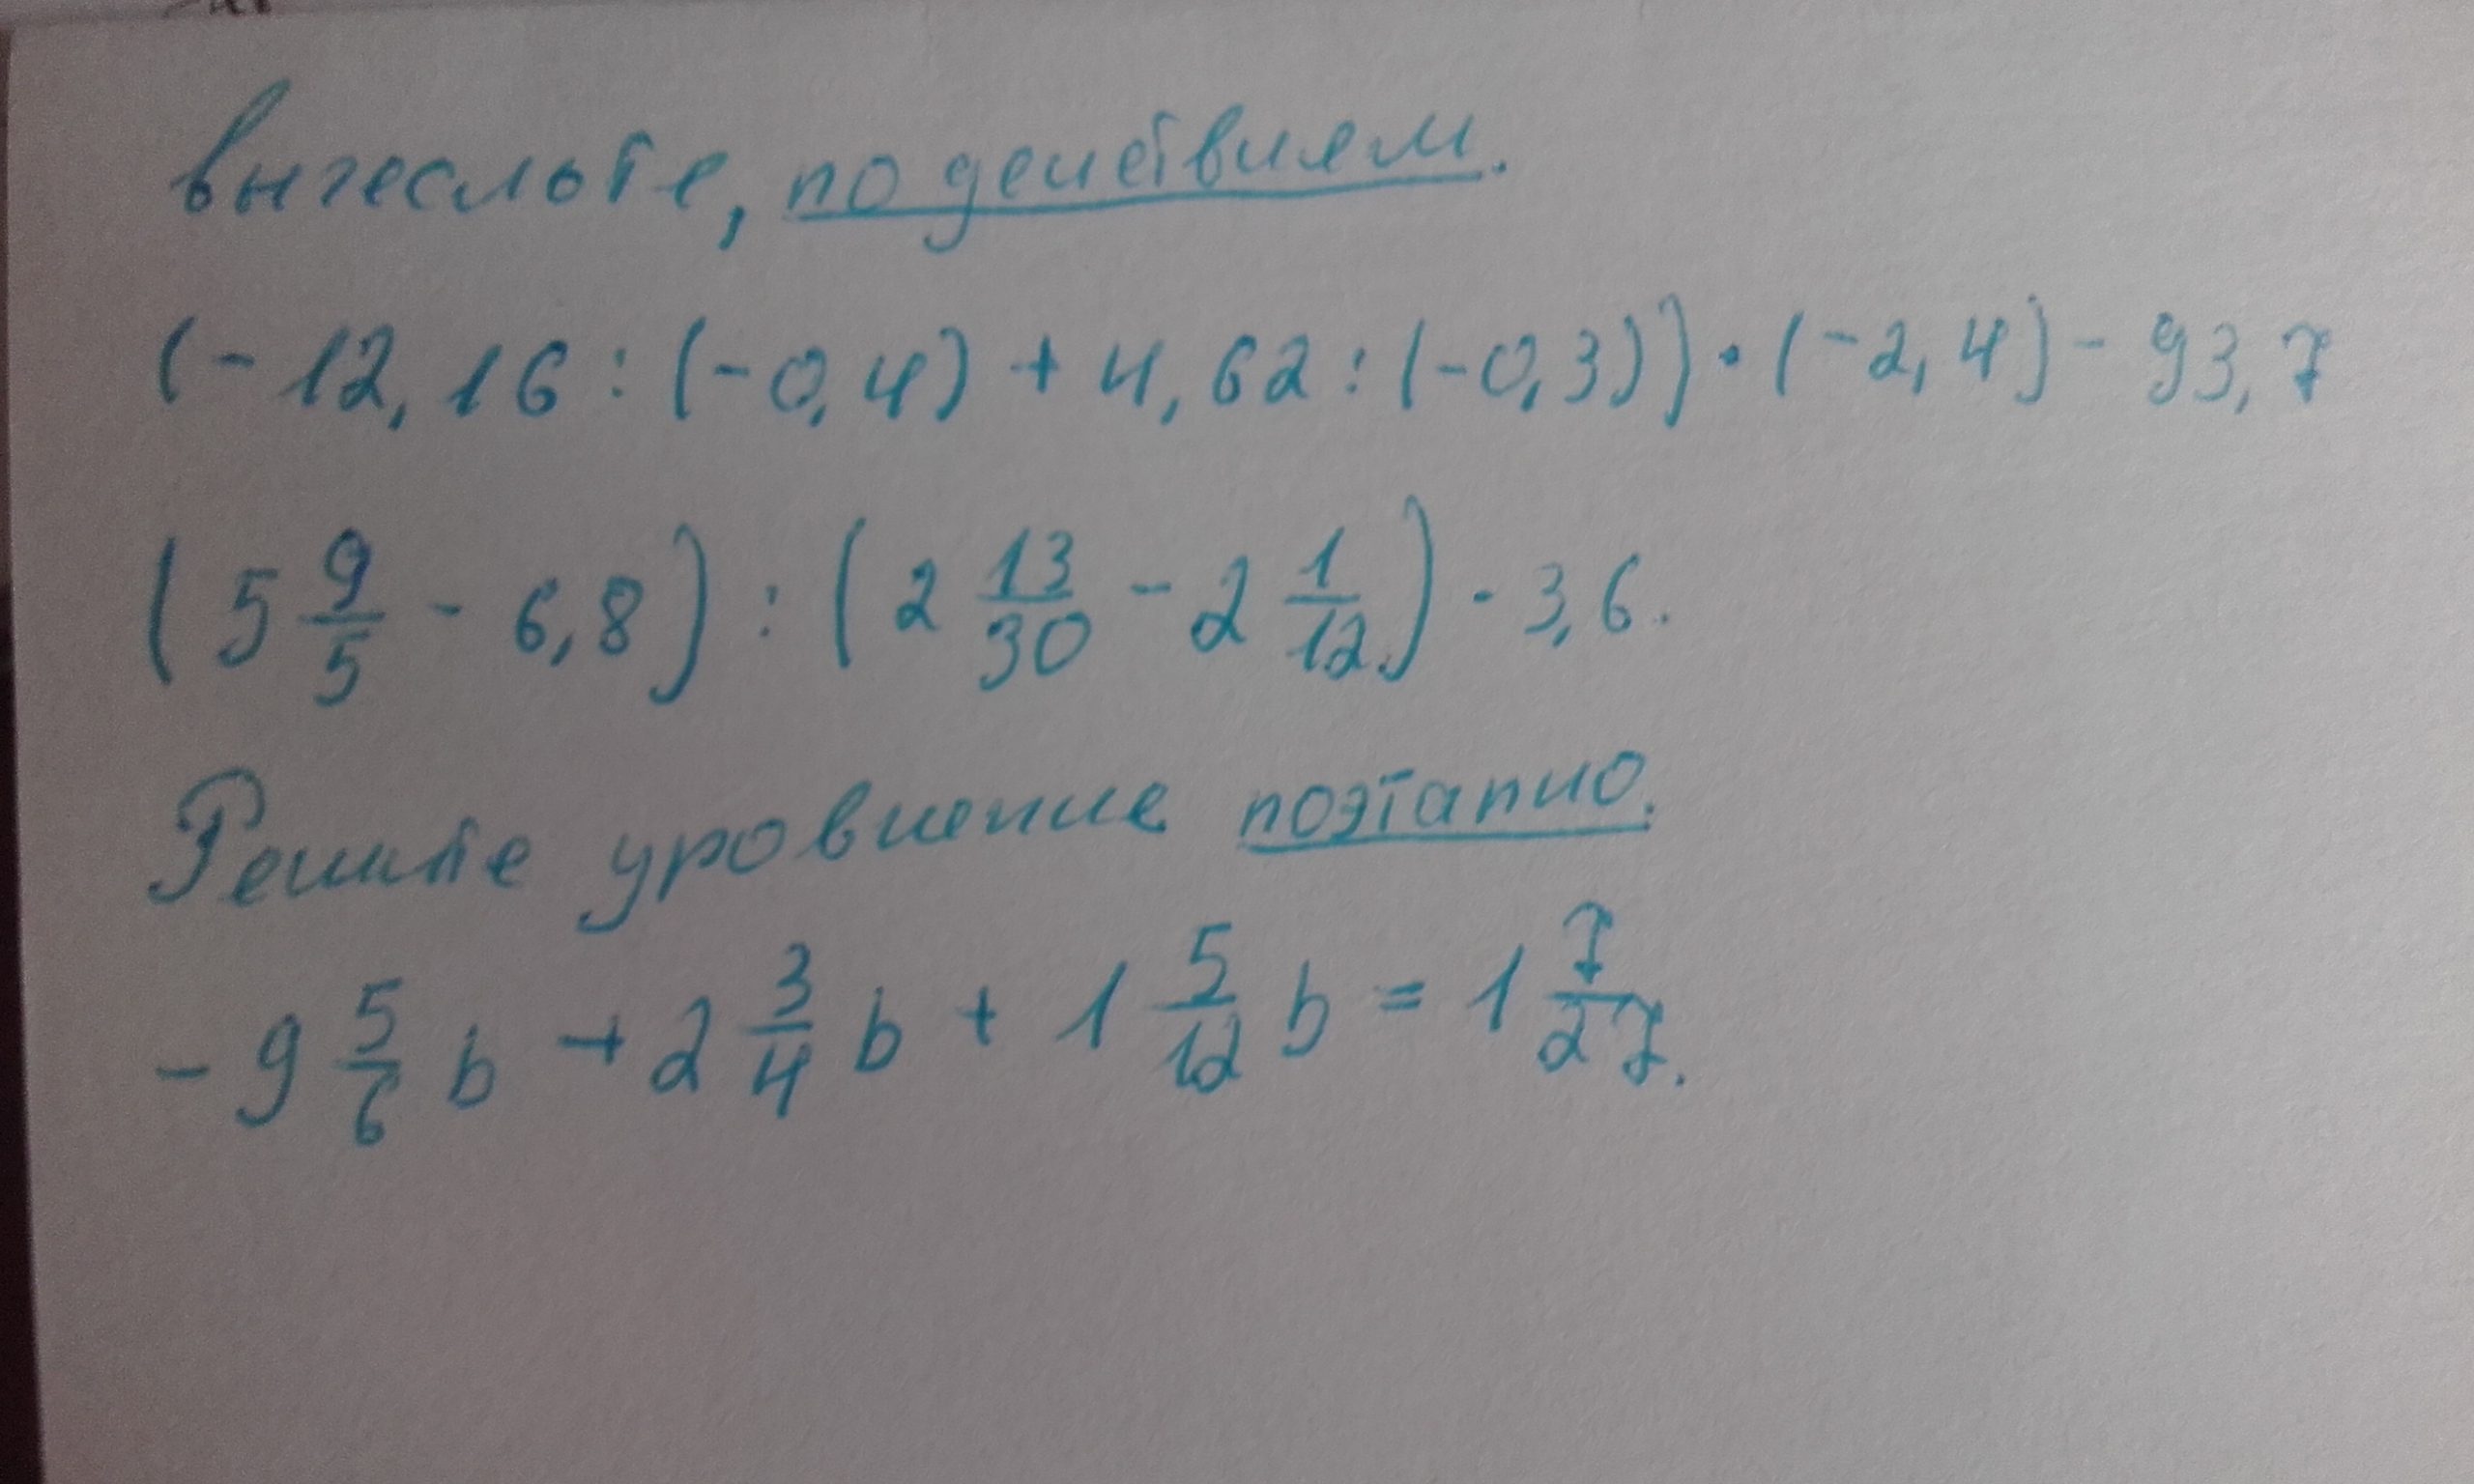 Вычеслите, по действиям.
(-12,16:(-0,4)+4,62:(-0,3))·(-2,4)-93,7
(5 9/5 - 6,8):(2 13/30 - 2 1/12)·3,6.
Решите уровнение поэтапно:
-9 5/6 b + 2 3/4 b + 1 5/12 b = 1 7/27.